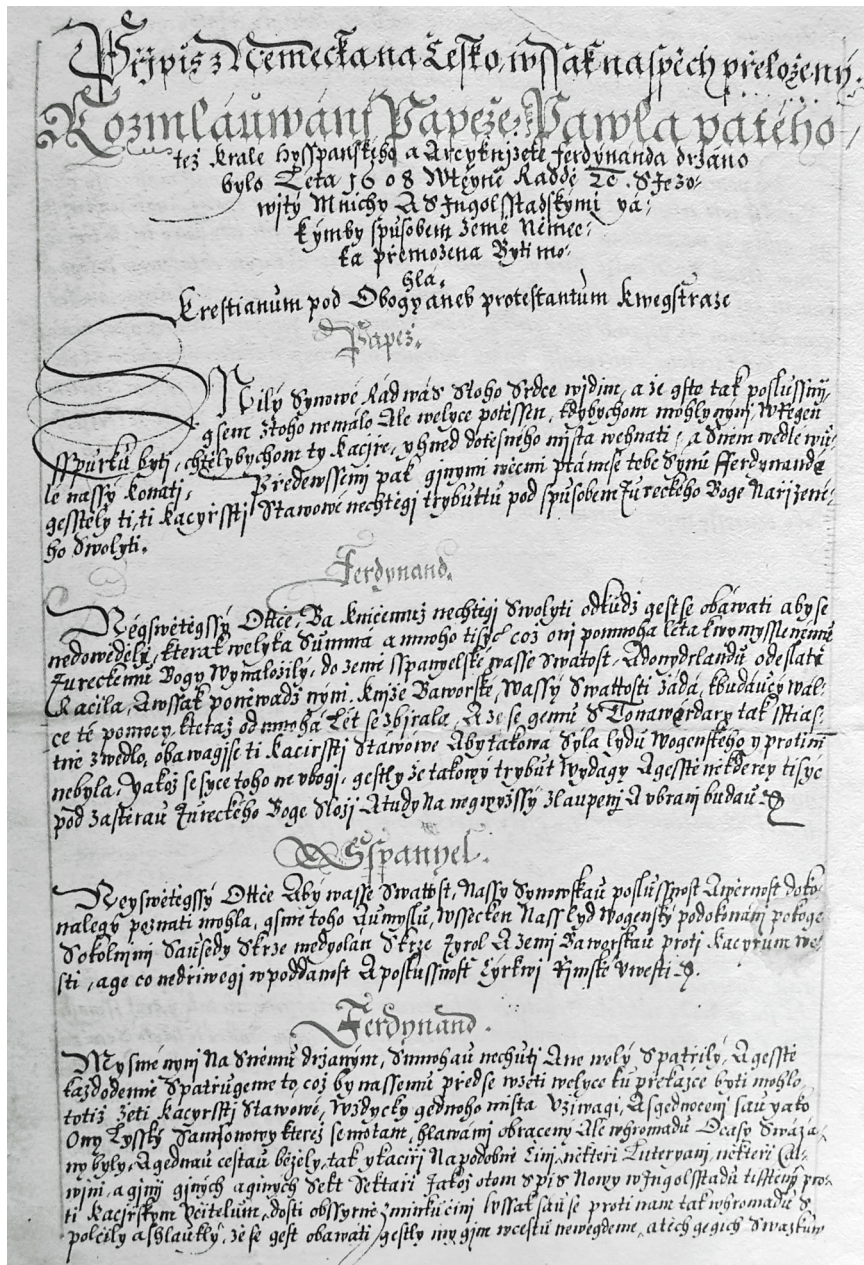 Přjpis z Německa na Česko, wssak na spěch přeložený.
Rozmláuwánj Papeže Pawla pátého
též Krale Hysspanského a Arcyknjžete Ferdynánda držáno
bylo Léta 1608 W Teyné Raddě S Jezo-
wity Mnichy A S Ingolsstadskými ya-
kýmby spůsobem Země Němec-
ka přemožena Býti mo-
hla.
Krestianům pod Obogy aneb protestantům Kweystraze
Papež.
Milý Synowé Rád wás Stoho Srdce wjdjm, a že gste tak poslussnij,
gsem ztoho nemálo Ale welyce potěssen, kdybychom mohly nynj W Řezen
sspurku býti, chtělybychom ty Kacýře, yhned do těsného mjsta wehnati, a Snimi wedle wů-
le nassý Konati, Předewssemj pak gjnymi wěcmi ptámese tebe Synu Fferdynandě
gesstely ti, ti Kacyřsstj Stawowé nechtěgj trybuttu pod spůsobem Tureckého Boge Nařjzené-
ho Swolyti.
Ferdynand.
Neyswětěgssý Ottče, Ba Kničemuž nechtěgj Swolyti odkudž gest se obáwati aby se
nedowěděly, kterak welyka Summa a mnoho tisýc což onj po mnoha léta k wymysslenému
Tureckému Bogy Wynaložily, do země Sspanyelské wasse Swatost, A do Nydrlandů odeslati
Ráčila, A wssak poněwadž nynj, Knjže Baworské, Wassý Swattosti žádá, k budaucý wál-
ce té pomocy, kteraž od mnoha Lét se zbjrala, A že se gemu S Tonawerdary tak sstias-
tně zwedlo, obáwagjse ti Kacirsstj Stawowé Aby takowá Sýla lydu Wogenského y proti nim
nebyla, yakož se syce toho ne vbogj, gestly že takowý trybut Wydagy A gesstě někderey tisýc
pod zastěrau Tureckého Boge Složj A tudy Na neywyžssý zlaupenj A obranj budau
Sspanyel.
Neyswětěgssý Ottče Aby wasse Swattost, Nassy Synowskau poslussnost A wěrnost doko-
nalegy poznati mohla, gsme toho aumyslu, Wssecken Nass Lyd Wogenský po dokonánj pokoge
S okolnimi Sausedy Skrze Medyolán Skrze Tyrol A zemi Baworskau proti Kacyrum we-
sti, a ge co neydřiwegj w poddanost A poslussnost Cýrkwj Řjmské vwesti.
Ferdynand.
My sme nynj Na Sněmu držaným, S mnohau nechutj A ne wolý Spatřily, A gesstě
každodenně Spatřugeme to, což by nassemu předse wzetj welyce ku překážce býti mohlo
totiž že ti Kacyrsstj Stawowé, Wždycky gednoho mjsta Vžiwagj, A sgednocenj sau yako
Ony Lyssky Samsonowy kterež se motam, hlawámi obráceny Ale w hromadu Ocasy Swáza-
ny byly, A gednau cestau běžely, tak y kacjri Na podobně činj, někteři Luteryanj, někteři Cal-
wjnj, a gjnj gjných a giných Sekt Sektáři Jakož o tom Spis Nowý w Ingolsstadu tisstěný pro-
ti Kacjrským Včitelům, dosti obssyrně zmjnku činj Lyssak sau se proti nám tak w hromadu S
polčily a shlaukly, že se gest obáwati gestly my gjm w cestu newegdeme, a těch gegich Swazkůw